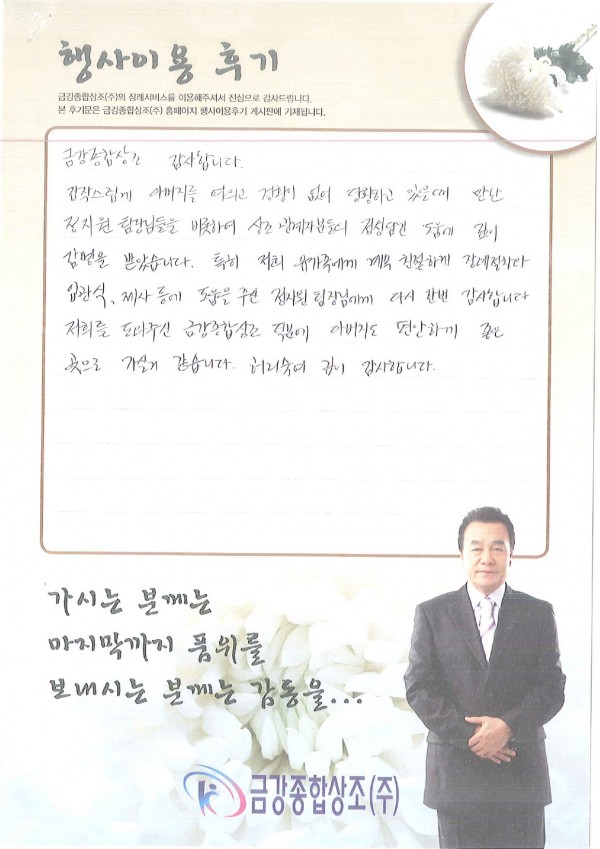 행사이용 후기
금강종합상조(주)의 장례서비스를 이용해주셔서 진심으로 감사드립니다.
본 후기문은 금강종합상조(주) 홈페이지 행사이용후기 게시판에 기재됩니다.
금강종합상조 감사합니다.
갑작스럽게 아버지를 여의고 경황이 없어 당황하고 있을때 만난
정지원 팀장님들을 비롯하여 상조 관계자분들의 정성담긴 도움에 깊이
감명을 받았습니다. 특히 저희 유가족에게 계속 친절하게 장례절차나
입관식, 제사 등에 도움을 주신 정지원 팀장님에게 다시 한번 감사합니다
저희를 도와주신 금강종합상조 덕분에 아버지도 편안하게 좋은
곳으로 가실거 같습니다. 머리숙여 깊이 감사합니다.
가시는 분께는
마지막까지 품위를
보내시는 분께는 감동을...
금강종합상조(주)